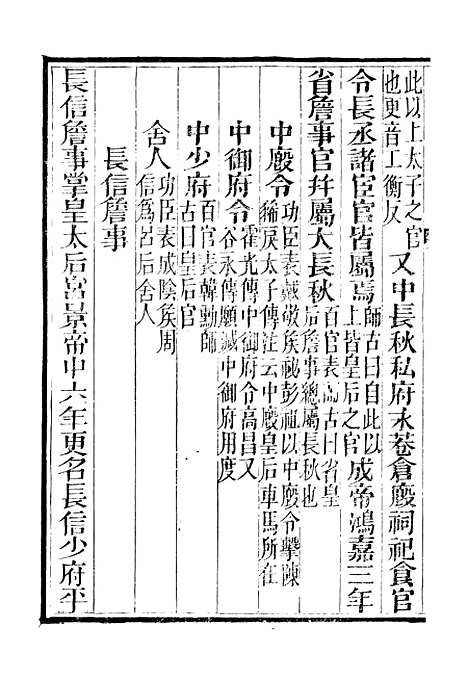 此以上太子之官
也更音工衡反
又中長秋私府永巷倉廄祠祀食官
令長丞諸宦官皆屬焉
師古曰自此以
上皆皇后之官
成帝鴻嘉三年
省詹事官幷屬大長秋
百官表師古曰省皇
后詹事總屬長秋也
中廄令
功臣表戴敬矦祕彭祖以中廄令擊陳
豨戾太子傳注云中廄皇后車馬所在
中御府令
霍光傳中御府令高昌又
谷永傳願減中御府用度
中少府
百官表韓勳師
古曰皇后官
舍人
功臣表成陰矦周
信爲呂后舍人
長信詹事
長信詹事掌皇太后宮景帝中六年更名長信少府平